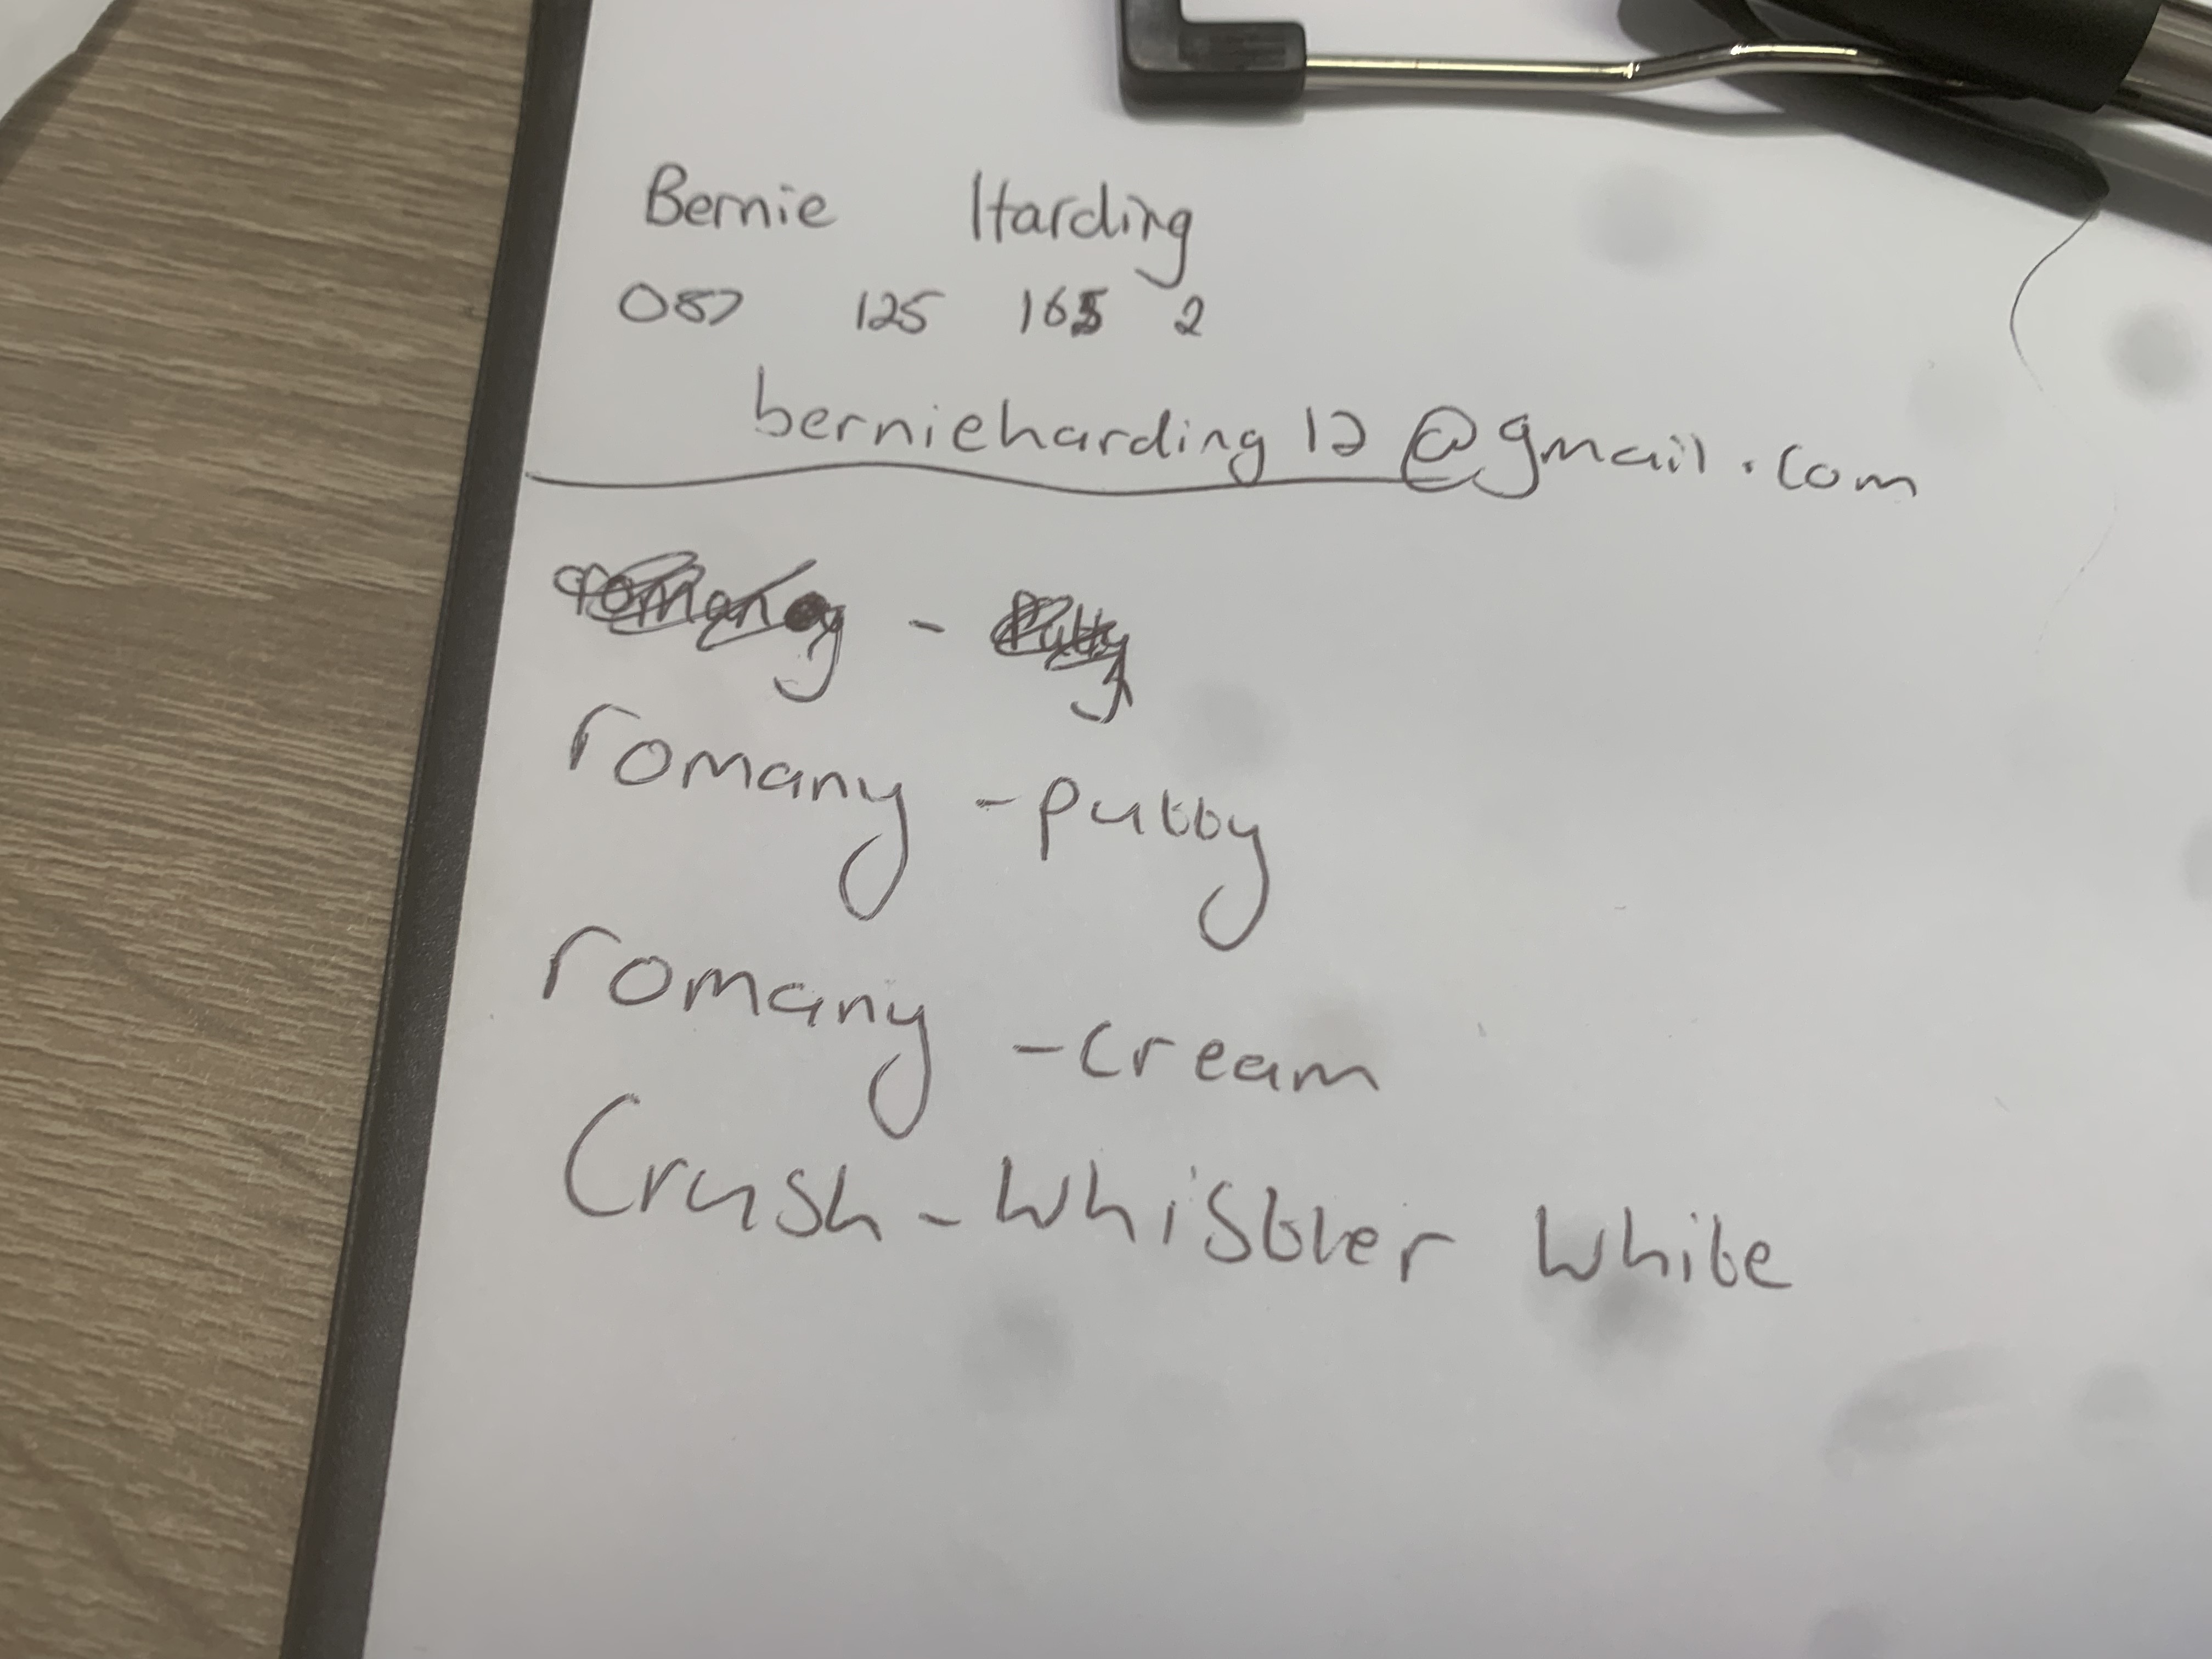 Bernie Harding
087 125 165 2
bernieharding12@gmail.com
romany - putty
romany - cream
Crush - Whistler White